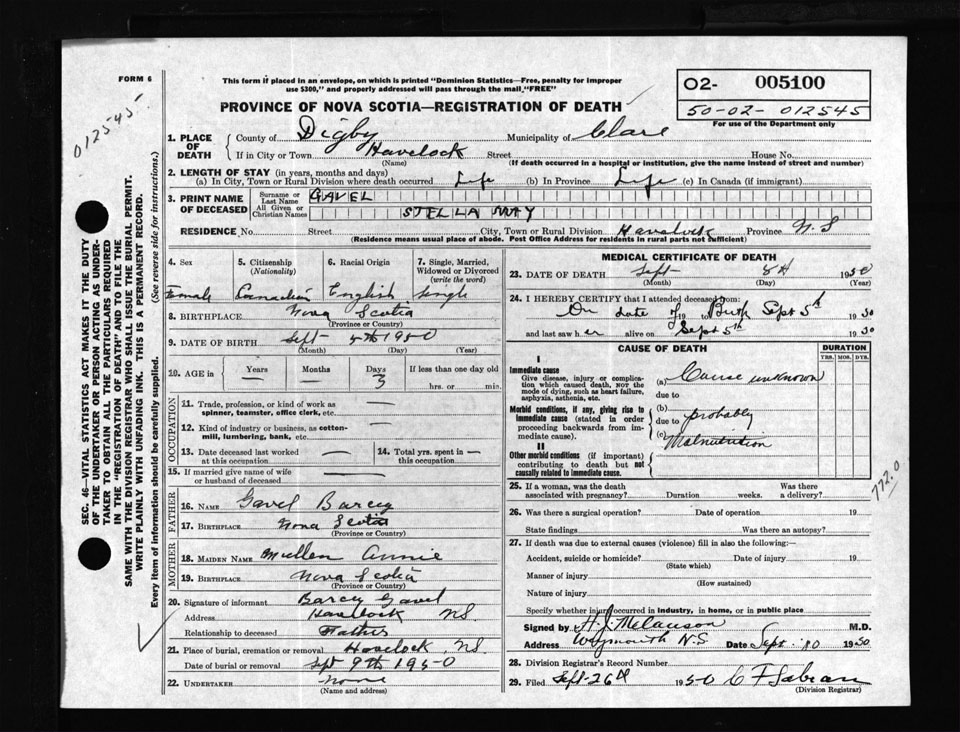 FORM 6
This form if placed in an envelope, on which is printed "Dominion Statistics—Free, penalty for improper
use $300," and properly addressed will pass through the mail "FREE"
PROVINCE OF NOVA SCOTIA—REGISTRATION OF DEATH
02- 005100
50-02-012545
For use of the Department only
012545
1. PLACE OF DEATH County of Digby Municipality of Clare
If in City or Town Havelock Street House No.
(Name) (If death occurred in a hospital or institution, give the name instead of street and number)
2. LENGTH OF STAY (in years, months and days)
(a) In City, Town or Rural Division where death occurred Life (b) In Province Life (c) In Canada (if immigrant)
3. PRINT NAME OF DECEASED Surname or Last Name GAVEL
All Given or Christian Names STELLA MAY
RESIDENCE No. Street City, Town or Rural Division Havelock Province N.S
(Residence means usual place of abode. Post Office Address for residents in rural parts not sufficient)
4. Sex 5. Citizenship (Nationality) 6. Racial Origin 7. Single, Married, Widowed or Divorced (write the word)
Female Canadian English Single
8. BIRTHPLACE Nova Scotia
(Province or Country)
9. DATE OF BIRTH Sept 5th 1950
(Month) (Day) (Year)
10. AGE in Years Months Days If less than one day old
— — 3 hrs. or min.
OCCUPATION
11. Trade, profession, or kind of work as
spinner, teamster, office clerk, etc. —
12. Kind of industry or business, as cotton-
mill, lumbering, bank, etc. —
13. Date deceased last worked at this occupation — 14. Total yrs. spent in this occupation —
15. If married give name of wife
or husband of deceased —
FATHER
16. NAME Gavel Barcey
17. BIRTHPLACE Nova Scotia
(Province or Country)
MOTHER
18. MAIDEN NAME Mullen Annie
19. BIRTHPLACE Nova Scotia
(Province or Country)
20. Signature of informant Barcey Gavel
Address Havelock NS.
Relationship to deceased Father
21. Place of burial, cremation or removal Havelock, NS
Date of burial or removal Sept 9th 1950
22. UNDERTAKER None
(Name and address)
MEDICAL CERTIFICATE OF DEATH
23. DATE OF DEATH Sept 8th 1950
(Month) (Day) (Year)
24. I HEREBY CERTIFY that I attended deceased from:
On date of 19 to Birth Sept 5th 1950
and last saw her alive on Sept 5th 1950
CAUSE OF DEATH DURATION
YRS. MOS. DYS.
I
Immediate cause
Give disease, injury or complica-
tion which caused death, NOT the
mode of dying, such as heart failure,
asphyxia, asthenia, etc.
(a) Cause unknown
due to
Morbid conditions, if any, giving rise to
immediate cause (stated in order
proceeding backwards from im-
mediate cause).
(b) probably
due to
(c) Malnutrition
II
Other morbid conditions (if important)
contributing to death but not
causally related to immediate cause.
772.0
25. If a woman, was the death associated with pregnancy? Duration weeks. Was there a delivery?
26. Was there a surgical operation? Date of operation 19
State findings Was there an autopsy?
27. If death was due to external causes (violence) fill in also the following:—
Accident, suicide or homicide? Date of injury 19
(State which)
Manner of injury
(How sustained)
Nature of injury
Specify whether injury occurred in industry, in home, or in public place
Signed by H.J. Melanson M.D.
Address Weymouth N.S. Date Sept. 1950
28. Division Registrar's Record Number
29. Filed Sept-26th 1950
(Division Registrar)
SEC. 46—VITAL STATISTICS ACT MAKES IT THE DUTY
OF THE UNDERTAKER OR PERSON ACTING AS UNDER-
TAKER TO OBTAIN ALL THE PARTICULARS REQUIRED
IN THE "REGISTRATION OF DEATH" AND TO FILE THE
SAME WITH THE DIVISION REGISTRAR WHO SHALL ISSUE THE BURIAL PERMIT.
WRITE PLAINLY WITH UNFADING INK. THIS IS A PERMANENT RECORD.
Every item of information should be carefully supplied. (See reverse side for instructions.)